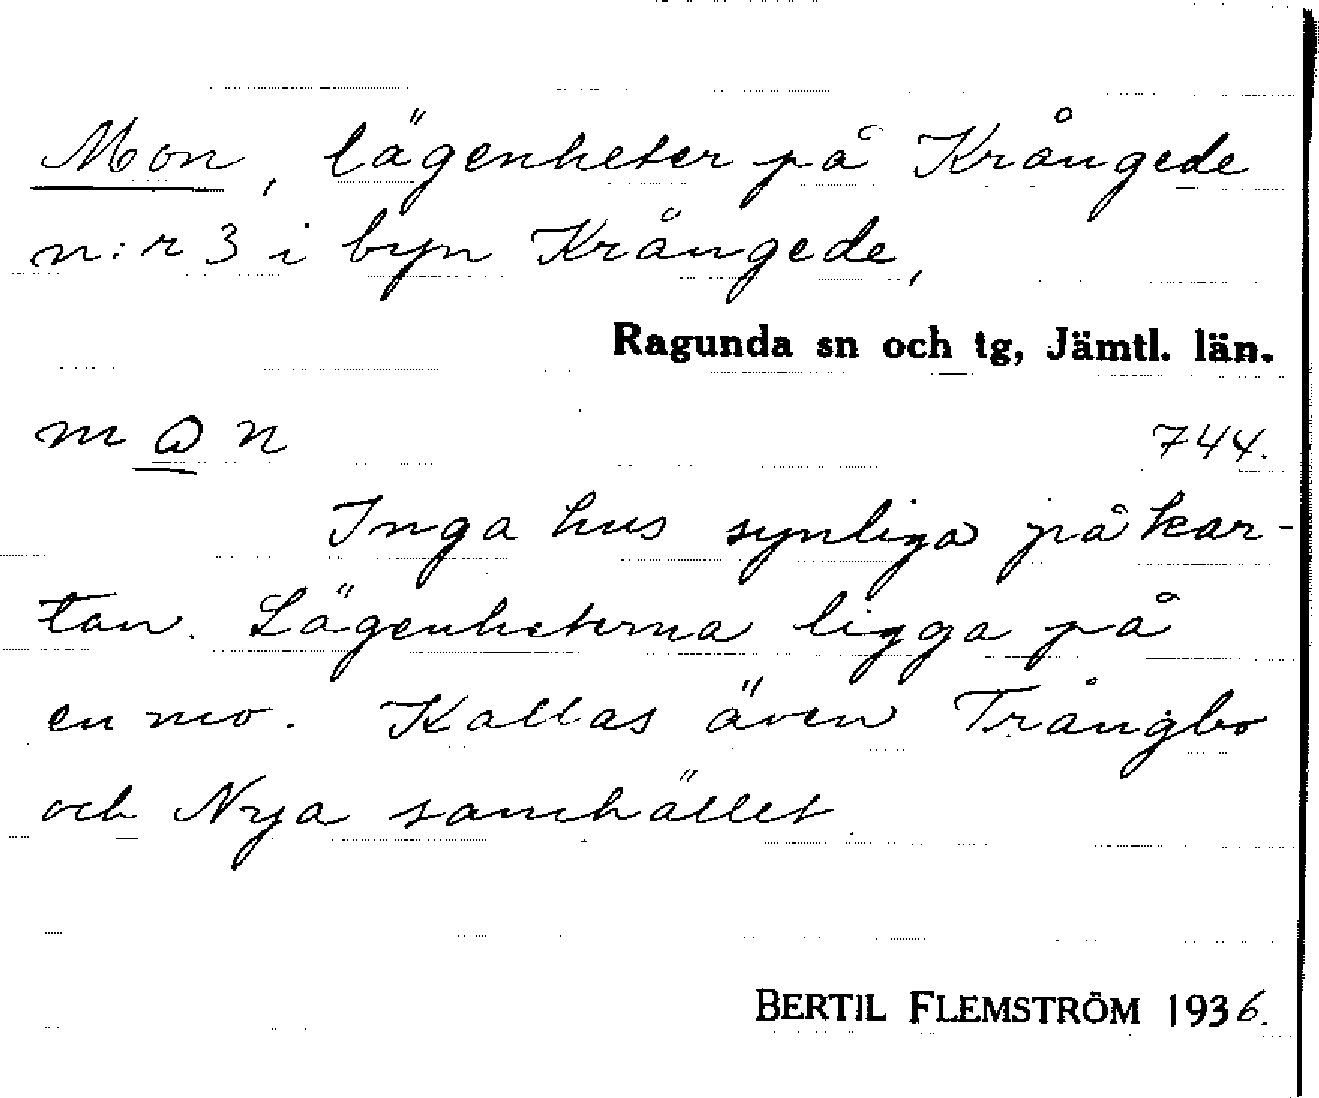 Mon, lägenheter på Krångede
n:r 3 i byn Krångede,
Ragunda sn och tg, Jämtl. län.
744.
Inga hus synliga på kar-
tan. Lägenheterna ligga på
en mo. Kallas även Trångbo
och Nya samhället.
BERTIL FLEMSTRÖM 1936.